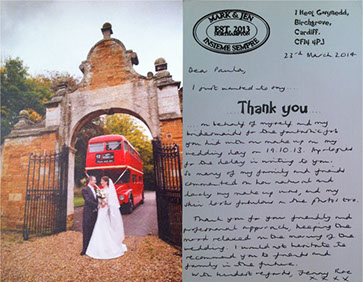 MARK & JEN
EST. 2013
INSIEME SEMPRE
1 Heol Gwynedd,
Birchgrove,
Cardiff.
CF14 4PJ
23rd March 2014
Dear Paula,
I just wanted to say...
Thank you
on behalf of myself and my
bridesmaids for the fantastic job
you did with our make up on my
wedding day on 19.10.13. Apologies
for the delay in writing to you.
So many of my family and friends
commented on how natural and
lovely my make up was and my
skin looks fabulous in the photos too.
Thank you for your friendly and
professional approach, keeping me
most relaxed on the morning of the
wedding. I would not hesitate to
recommend you to friends and
family in the future.
With kindest regards, Jenny
x x x x x